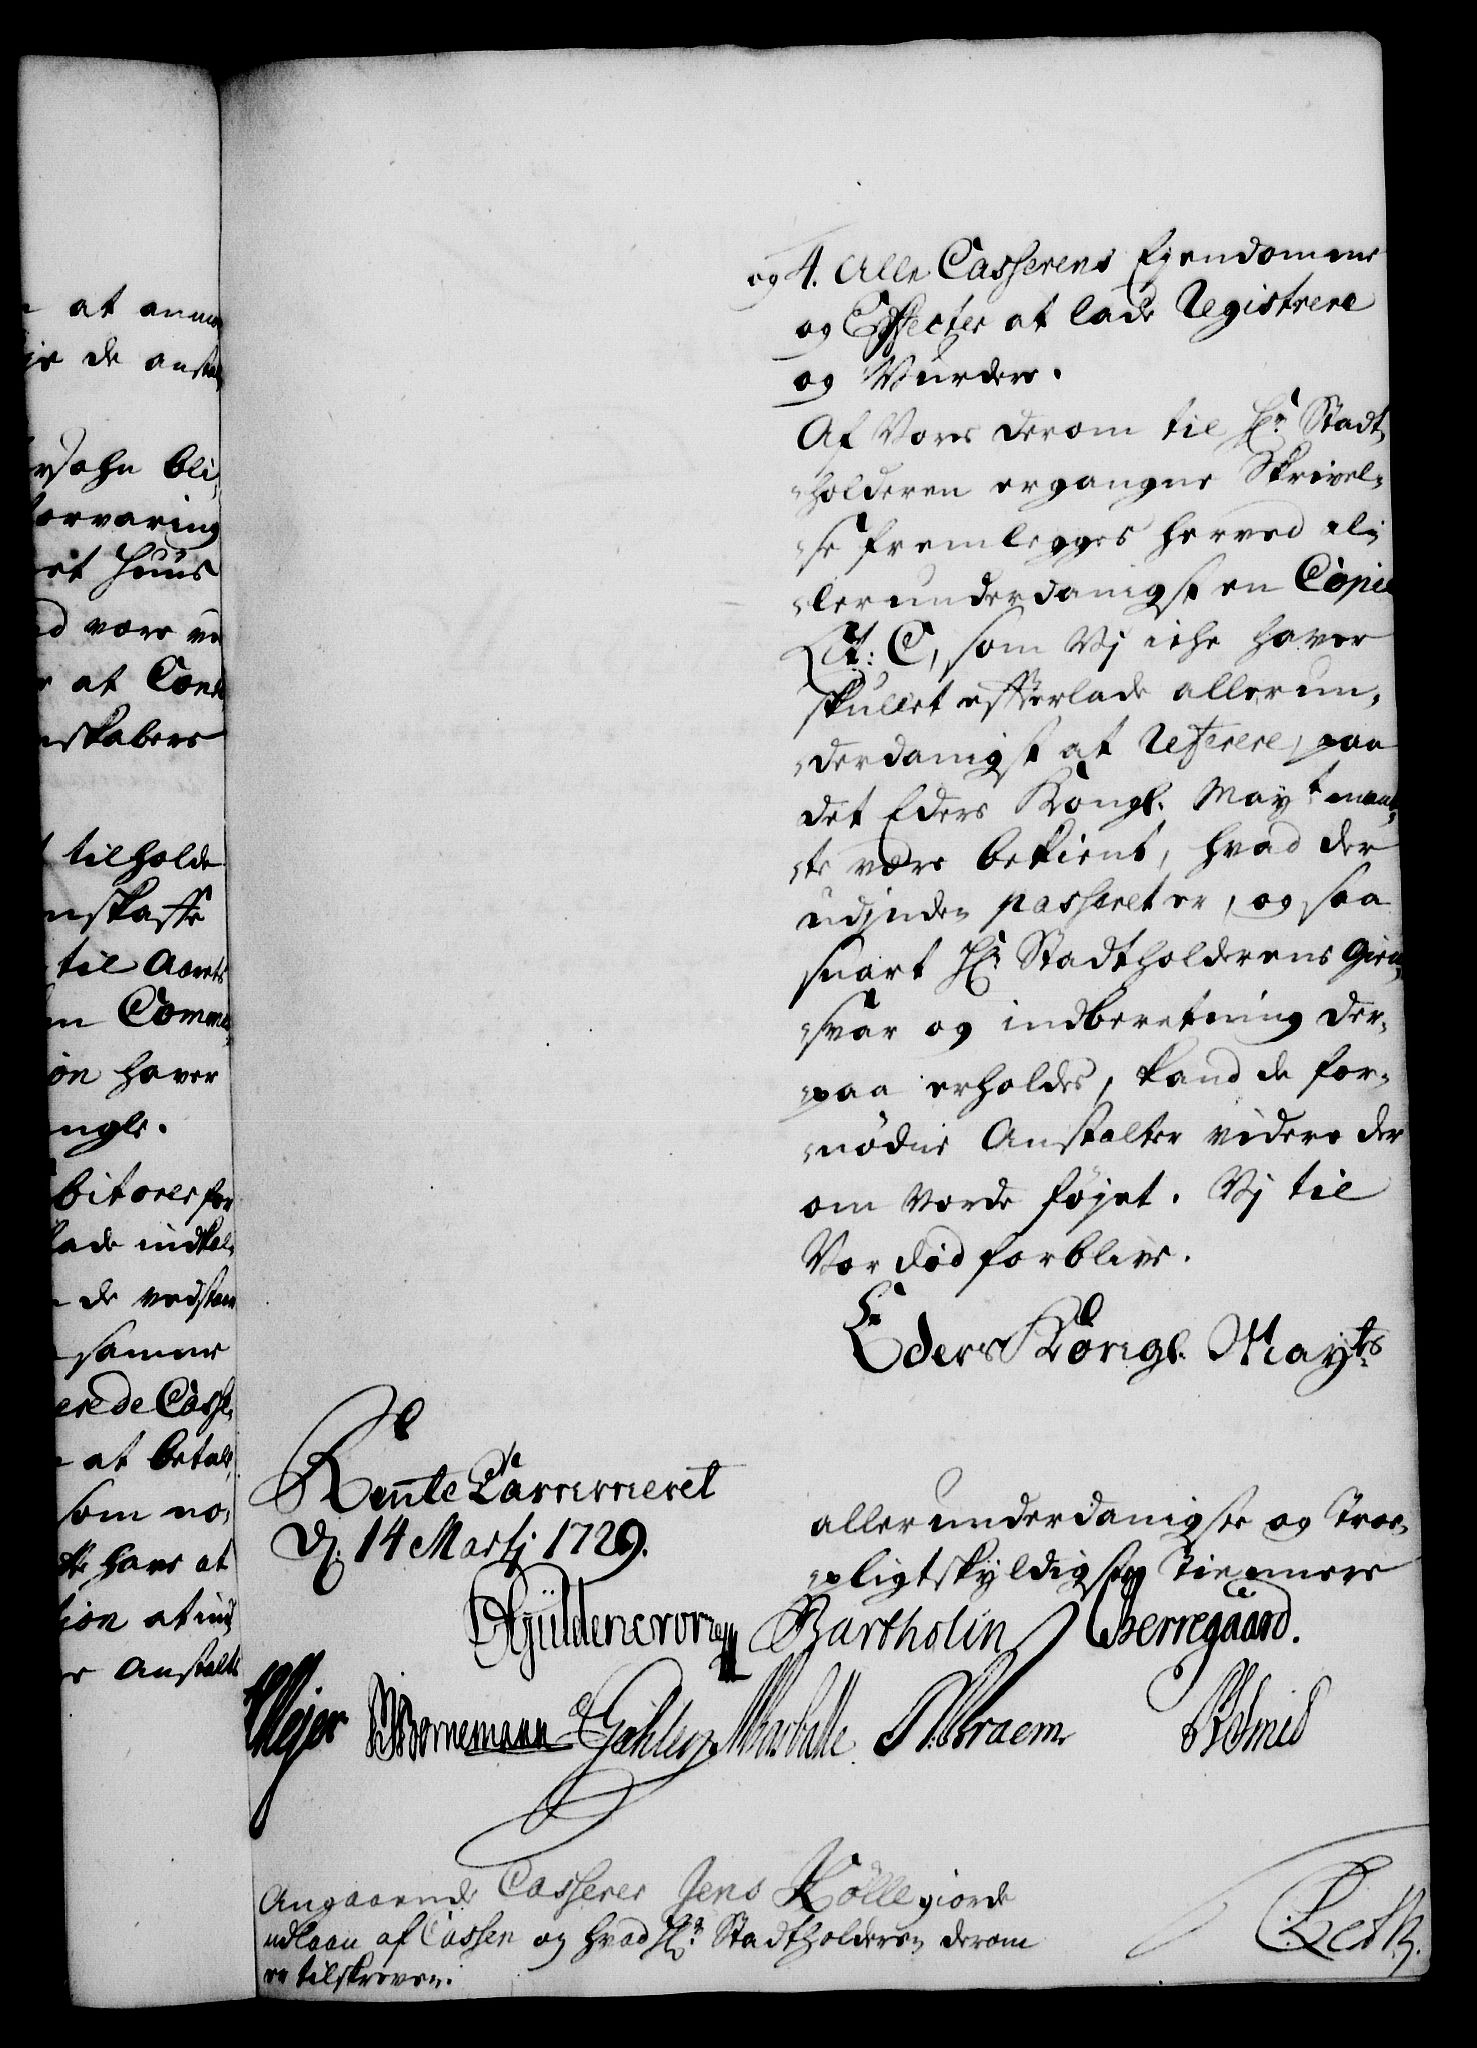 at anm
de ansta
rsohn bli,
forvaring
et Huus
d være
at Cont
nskabers
tilholde
nskaffe
til Aarets
en Commis,
ion haver
ngle.
bitorer for
lade indkal,
de vedstaa
samme
erede Casse,
at betale,
som no,
hans at
tion at ind
er Anstalte
og 4. Alle Casserens Ejendomme
og Effecter at lade Registrere
og Vurdere.
Af Vores derom til Hr. Stadt,
„holderen ergangne Skrivel„
„se fremlegges herved al„
„lerunderdanigst en Copie
Lit: C, som Vj iche haver
skullet efterlade allerun„
„derdanigst at Referere, paa
det Eders Kongl. Mayt maat„
„te være bekient, hvad der
udjnden passeret er, og saa
snart Hr. Stadtholderens Gien„
„svar og indberetning der„
„paa erholdes, kand de for„
„nødne Anstalter videre der
om vorde føjet. Vj til
Vor død forblive.
Eders Kongl. Mayts
Rente Cammeret
d. 14 Martj 1729.
allerunderdanigste og Troe„
„pligtskyldigste Tiennere
Güldencrone Bartholin Berregaard.
Mejer Bornemann Gähler Braem Schmid
Angaaende Casserer Jens Kölle giorde
udlaan af Cassen og hvad Hr. Stadtholderen derom
er tilskreven.